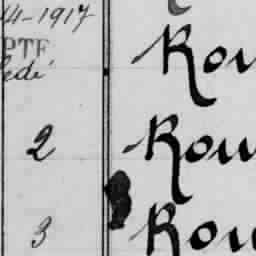 4-1917
PTE
cédé
Rou
2 Rou
3 Rou